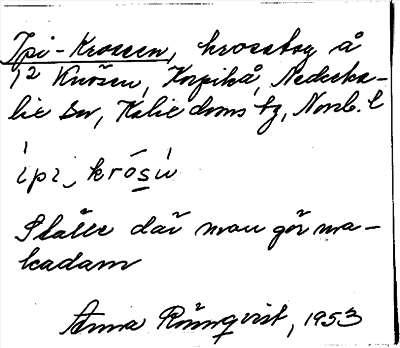 Ipi-Krossen, krossbyg å
12 Knösen, Korpikå, Nederka-
lix sn, Kalix doms tg, Norrb. l
ipi, krósu
Ställe där man gör ma-
kadam
Anna Rönnqvist, 1953